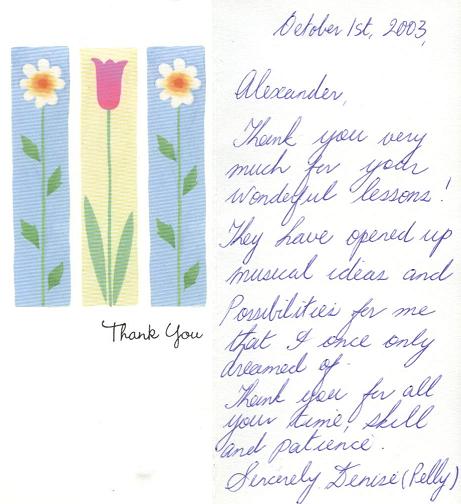 Thank You
October 1st, 2003,
Alexander,
Thank you very
much for your
wonderful lessons!
They have opened up
musical ideas and
Possibilities for me
that I once only
dreamed of.
Thank you for all
your time, skill
and patience.
Sincerely Denise (Pelly)